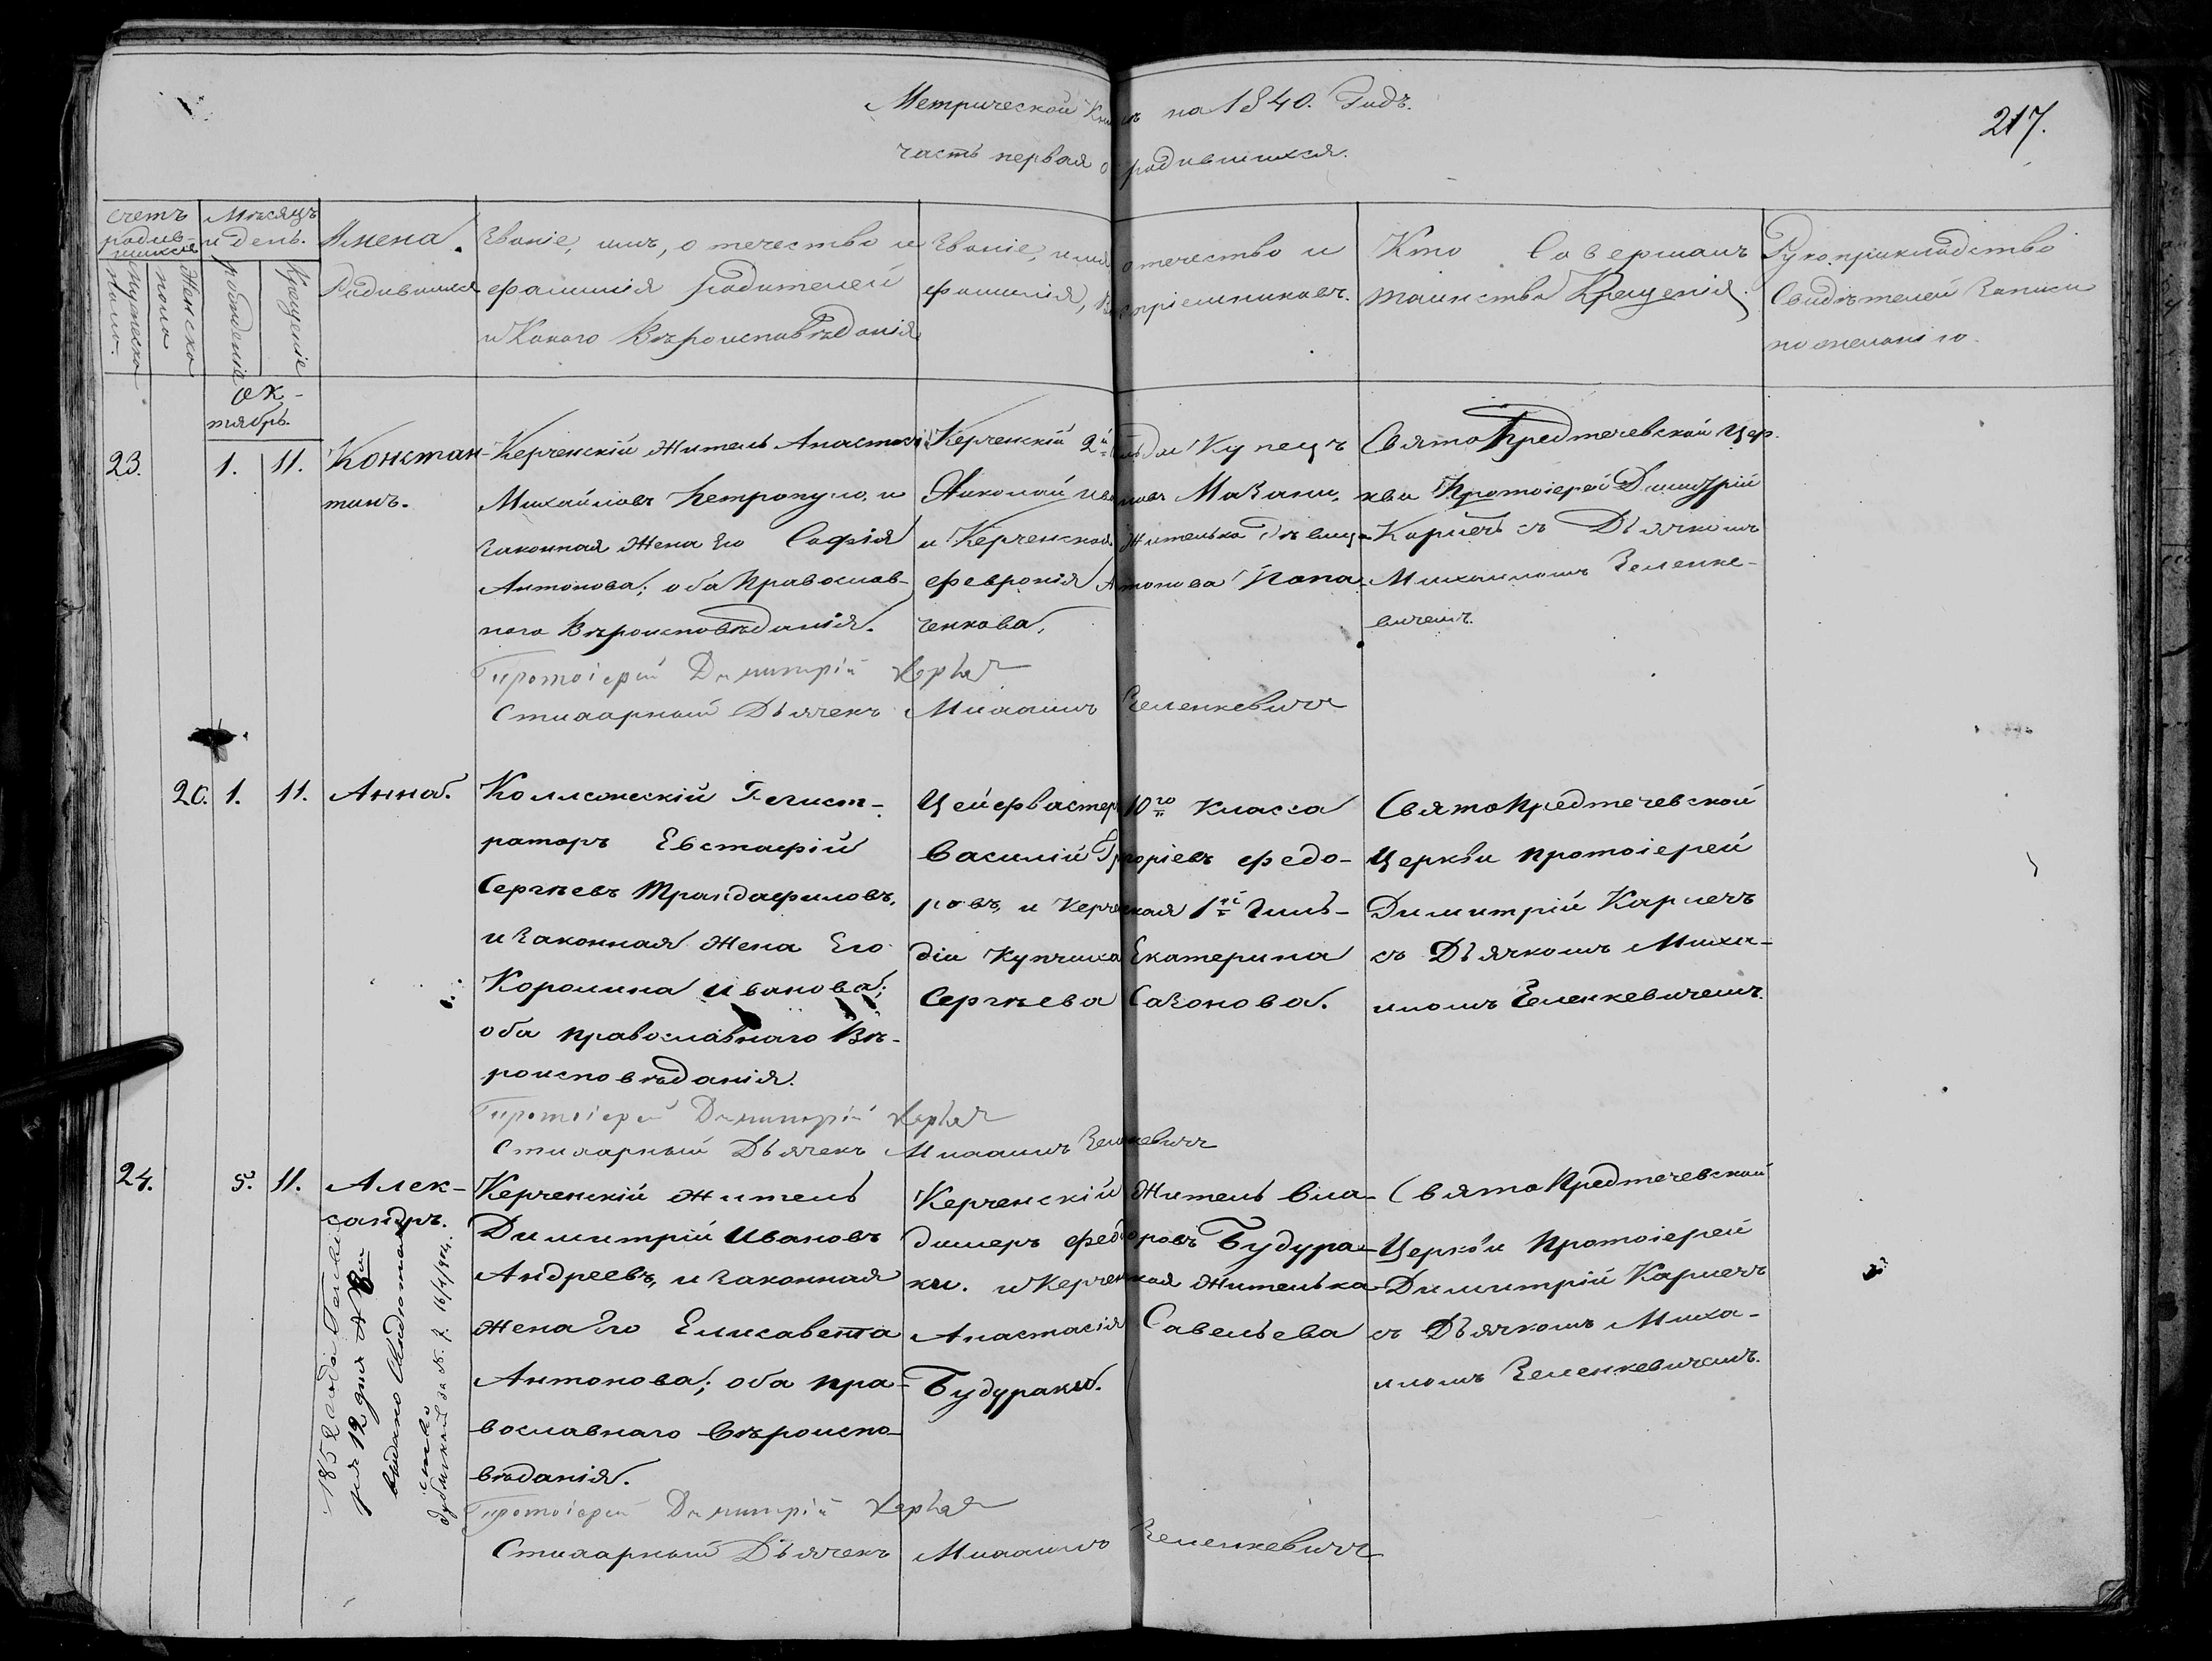 Метрической Книги на 1840. Годъ.
217.
часть первая о родившихся.
счетъ родив-шихся
Мужеска пола.
Женска пола
Мѣсяцъ и день.
рожденіе
Крещеніе
Имена.
Родившихся
Званіе, имя, отечество и
фамилія родителей
и Какого Вѣроисповѣданія
Званіе, имя отечество и
фамилія, Воспріемниковъ.
Кто Совершалъ
таинство Крещенія.
Рукоприкладство
Свидѣтелей Записи
по желанію.
ок-
тябрь.
23.
1.
11.
Констан-
тинъ.
Керченскій Житель Анастасій
Михайловъ Петропуло, и
Законная Жена Его Софія
Антонова; оба Православ-
наго Вѣроисповѣданія.
Керченскій 2й гильдіи Купецъ
Николай Ивановъ Мазани,
и Керченская Жителька Дѣвица
феврокія Антонова Попа-
ченкова,
СвятоПредтечевской Цер-
кви Протоіерей Димитрій
Карпечъ съ Дьячкомъ
Михаиломъ Зеленке-
вичемъ.
Протоіерей Димитрій
Стихарный Дьячекъ Михаилъ Зеленкевичъ
20.
1.
11.
Анна.
Коллежскій Регист-
раторъ Евстафій
Сергѣевъ Трандафиловъ,
и Законная Жена Его
Королина Иванова;
оба православнаго Вѣ-
роисповѣданія.
Цейфвастеръ 10го класса
Василій Григоріевъ Федо-
ровъ, и Керченская 1й Гиль-
діи Купчиха Екатерина
Сергѣева Сазонова.
СвятоПредтечевской
Церкви протоіерей
Димитрій Карпечъ
съ Дьячкомъ Миха-
иломъ Зеленкевичемъ.
Протоіерей Димитрій
Стихарный Дьячекъ Михаилъ Зеленкевичъ
24.
5.
11.
Алек-
сандръ.
1852 года
ря 12 дня №
выдано Свидетель-
ство
за №. 7. 16/4/904.
Керченскій Житель
Димитрій Ивановъ
Андреевъ, и Законная
Жена Его Елисавета
Антонова; оба пра-
вославнаго Вѣроиспо-
вѣданія.
Керченскій Житель Вла-
димеръ Федоровъ Будура-
ки. и Керченская Жителька
Анастасія Савельева
Будураки.
СвятоПредтечевской
Церкви Протоіерей
Димитрій Карпечъ
съ Дьячкомъ Миха-
иломъ Зеленкевичемъ.
Протоіерей Димитрій
Стихарный Дьячекъ Михаилъ Зеленкевичъ